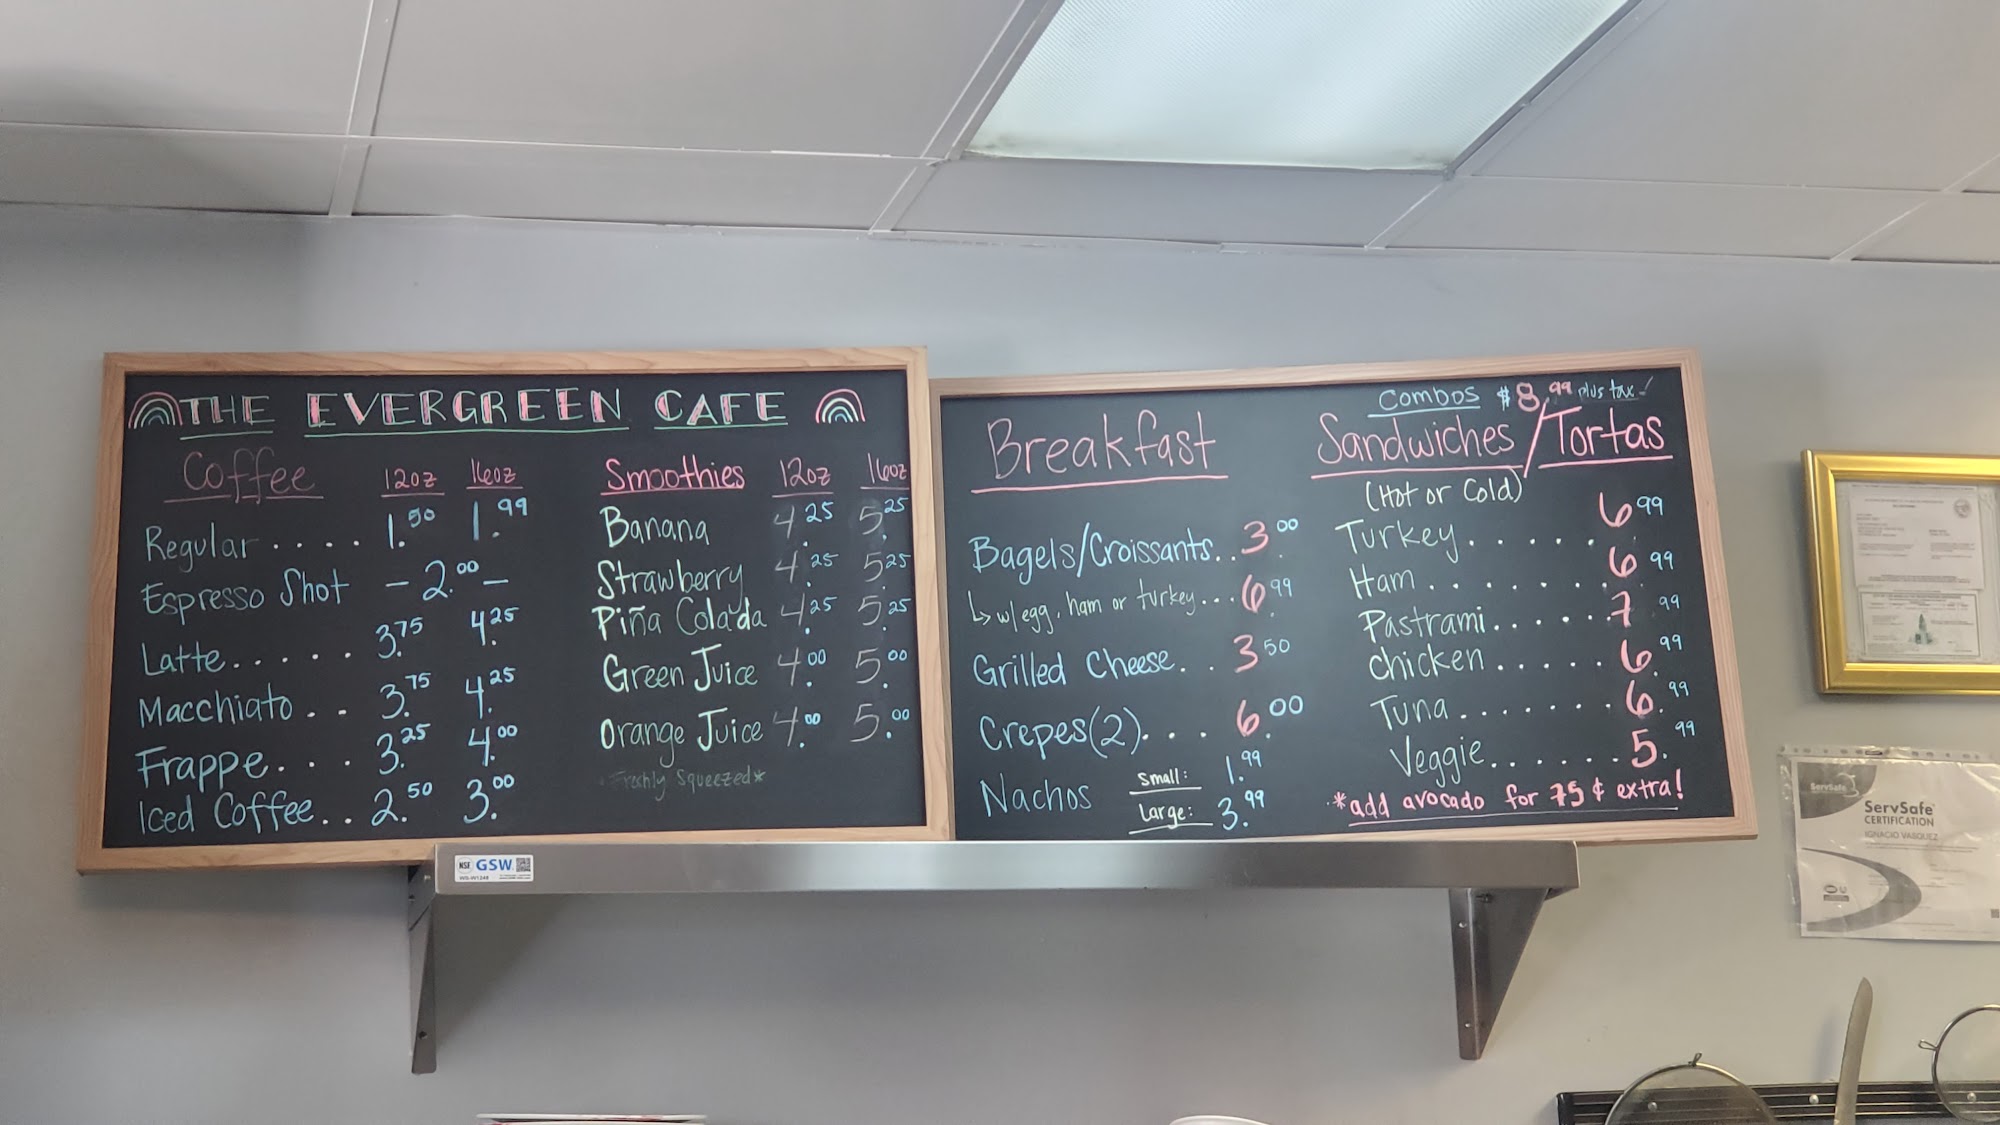 THE EVERGREEN CAFE
Coffee 12oz 16oz
Regular .... 1.50 1.99
Espresso Shot - 2.00 -
Latte..... 3.75 4.25
Macchiato .. 3.75 4.25
Frappe... 3.25 4.00
Iced Coffee.. 2.50 3.00
Smoothies 12oz 16oz
Banana 4.25 5.25
Strawberry 4.25 5.25
Piña Colada 4.25 5.25
Green Juice 4.00 5.00
Orange Juice 4.00 5.00
Freshly Squeezed*
Breakfast
Bagels/Croissants.. 3.00
w/egg, ham or turkey... 6.99
Grilled Cheese.. 3.50
Crepes(2)... 6.00
Nachos Small: 1.99
Large: 3.99
Combos $8.99 plus tax!
Sandwiches/Tortas
(Hot or Cold)
Turkey...... 6.99
Ham....... 6.99
Pastrami...... 7.99
Chicken..... 6.99
Tuna....... 6.99
Veggie...... 5.99
*add avocado for 75¢ extra!
NSF GSW
WS-W1248
ServSafe
ServSafe
CERTIFICATION
IGNACIO VASQUEZ